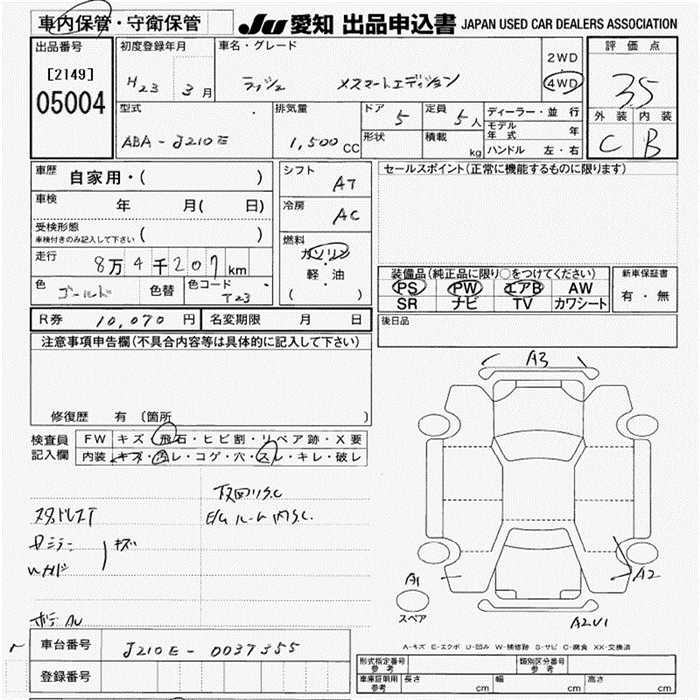 車内保管・守衛保管 JU 愛知 出品申込書 JAPAN USED CAR DEALERS ASSOCIATION
出品番号 初度登録年月 車名・グレード 2WD 評価点
[2149] 4WD
05004 H23 3月 ラッシュ 3.5
型式 排気量 ドア 5 定員 5人 ディーラー・並行 外装 内装
ABA-J210E 1,500CC 形状 積載 kg モデル年式 年 C B
ハンドル 左・右
車歴 自家用・( ) シフト AT セールスポイント(正常に機能するものに限ります)
車検 年 月( 日) 冷房 AC
受検形態 ( )
車検付きのみ記入して下さい
走行 8万4千207km 燃料 ガソリン・軽油 ( )
装備品(純正品に限り○をつけてください) 新車保証書
PS PW エアB AW 有・無
SR ナビ TV カワシート
色 ゴールド 色替 色コード T23
R券 10,070円 名変期限 月 日 後日品
注意事項申告欄(不具合内容等は具体的に記入して下さい)
修復歴 有 (箇所 )
検査員記入欄 FW キズ・飛石・ヒビ割・リペア跡・X要
内装 キズ・汚レ・コゲ・穴・スレ・キレ・破レ
A3
A1
A2
スペア
A2U1
A-キズ E-エクボ U-凹み W-補修跡 S-サビ C-腐食 XX-交換済
車台番号 J210E-0037355
登録番号
形式指定番号 参考 類別区分番号 参考
車庫証明用 参考 長さ cm 幅 cm 高さ cm